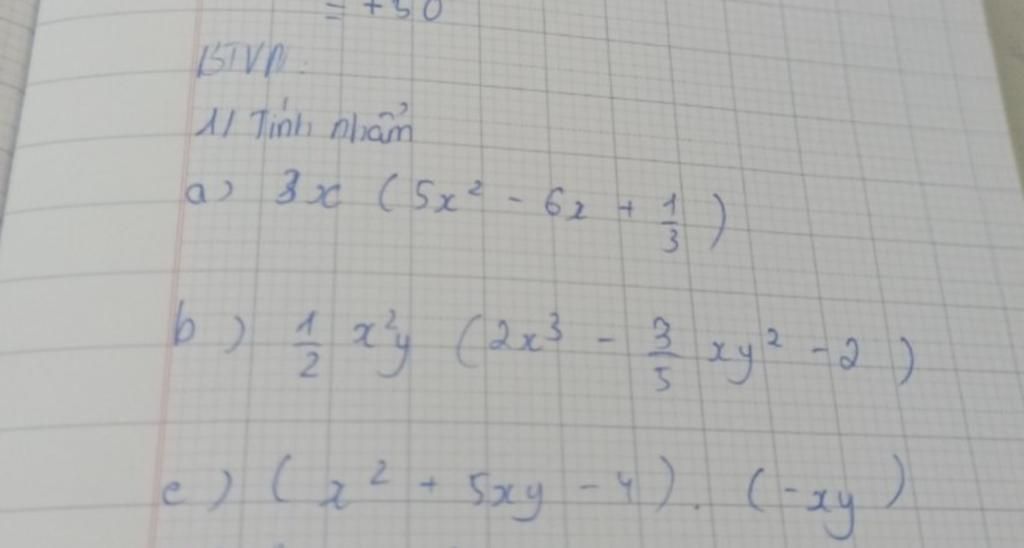 = +30
BTVN:
1/ Tính nhẩm
a) 3x (5x² - 6x + 1/3)
b) 1/2 x²y (2x³ - 3/5 xy² - 2)
c) (x² + 5xy - 4). (-xy)